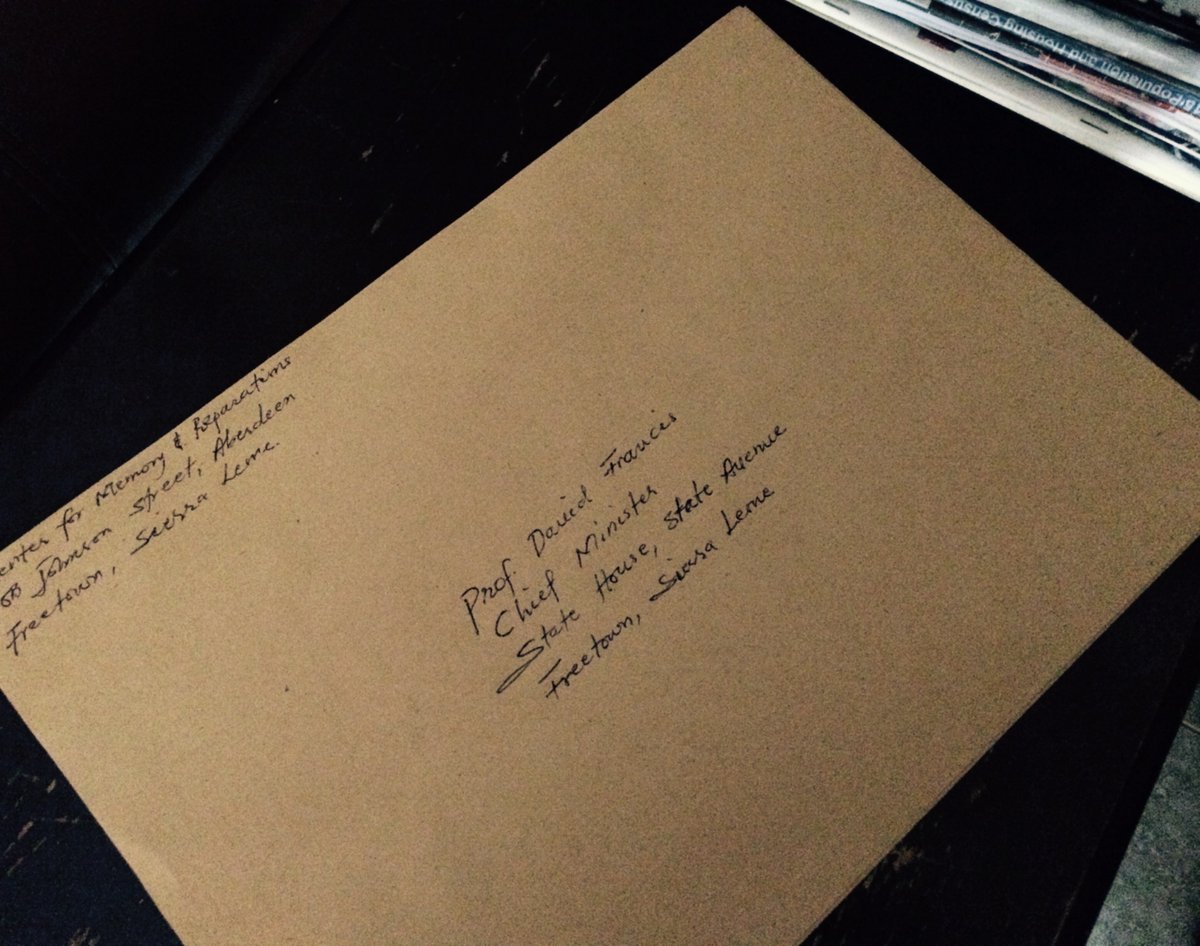 enter for Memory & Reparations
Johnson Street, Aberdeen
Freetown, Sierra Leone.
Prof. David Francis
Chief Minister
State House, State Avenue
Freetown, Sierra Leone
Population and Housing Census